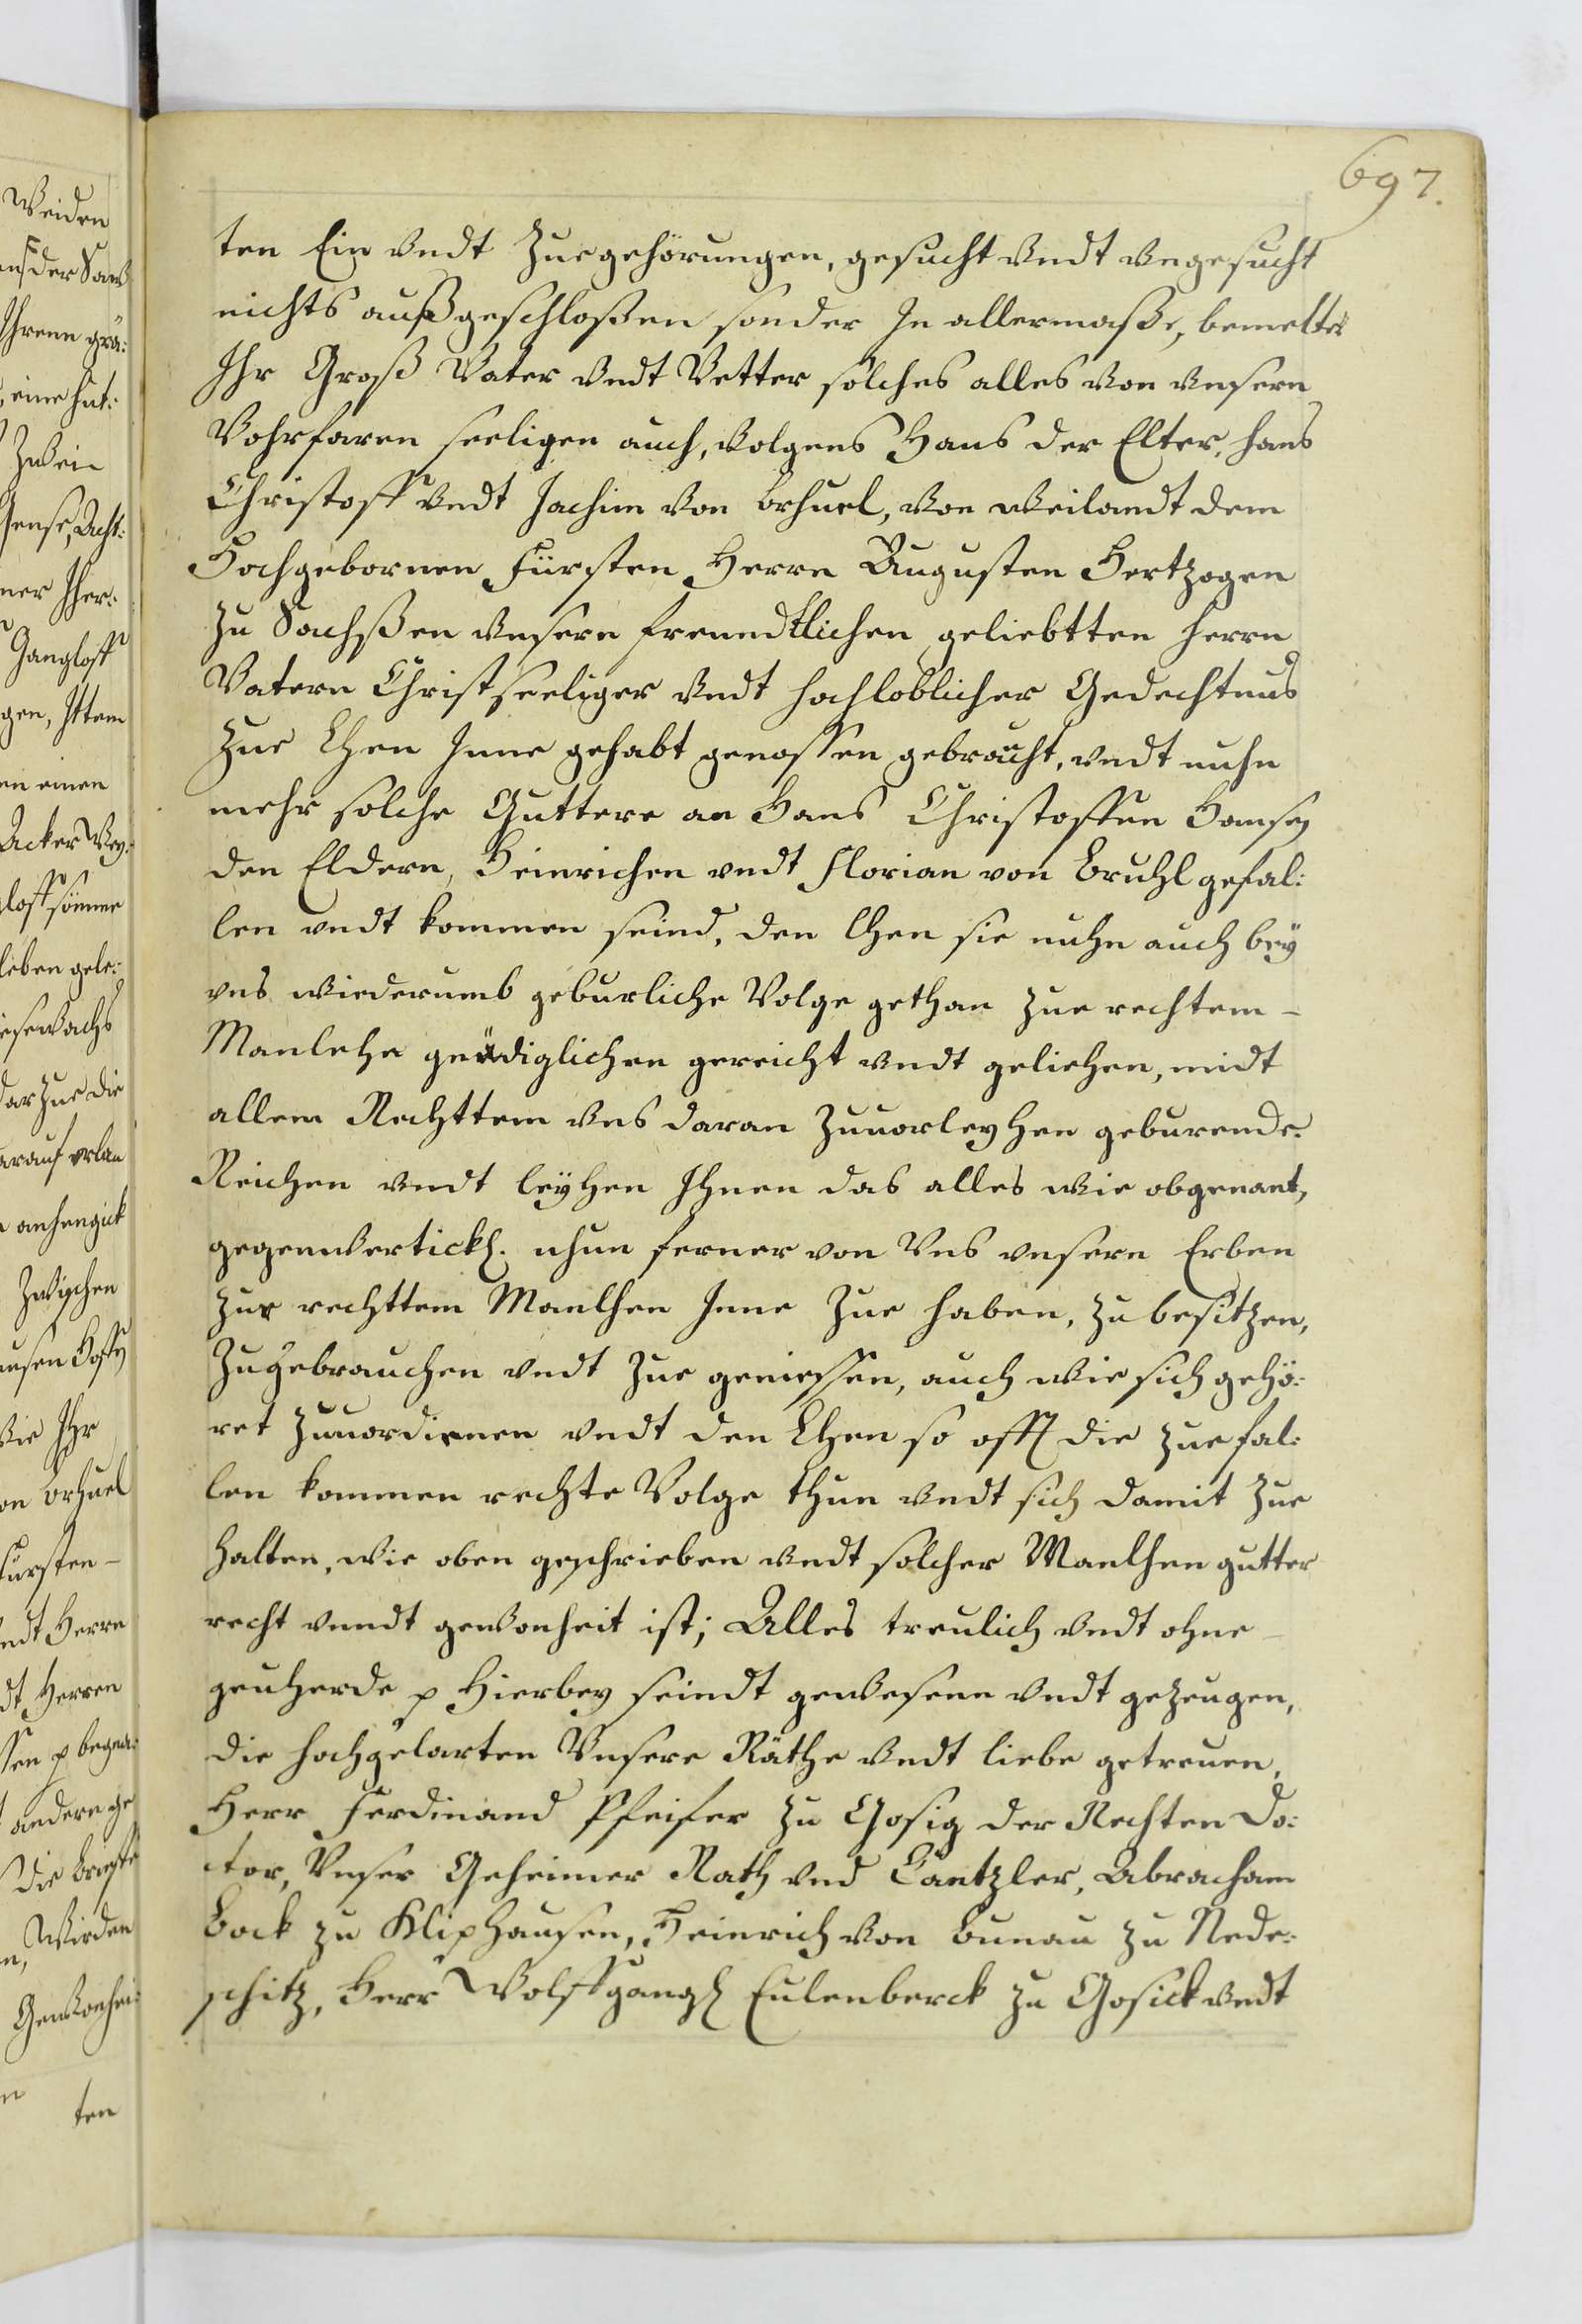 697.
ten Ein vndt Zuegehörungen, gesucht vndt vngesucht
nichts außgeschloßen sonder In allermaße, bemelter
Ihr Groß Vater vndt Vetter solches alles von vnsern
Vohrfaren seeligen auch, volgens Hans der Elter, hans
Christoff vndt Jachim von brhuel, von weilandt dem
Hochgebornen Fürsten Herrn Augusten Hertzogen
zu Sachßen vnsern freundtlichen geliebtten herrn
Vatern Christseeliger vndt hochloblicher Gedechtnus
zue Lhen Inne gehabt genossen gebraucht, vndt nuhn
mehr solche Guttere an Hans Christoffen Hansen
den Eldern, Heinrichen vndt Florian von Bruhl gefal:
len vndt kommen seind, den lhen sie nuhn auch bey
vns wiederumb geburliche Volge gethan zue rechtem
Manlehn gnädiglichen gereicht vndt geliehen, midt
allem Rechttem vns daran zuuorleyhen geburende.
Reichen vndt leyhen Ihnen das alles wie obgenant,
gegenwertickl. nhun ferner von Vns vnsern Erben
zur rechttem Manlhen Inne zue haben, zu besitzen,
Zugebrauchen vndt zue geniessen, auch wie sich gehö:
ret zuuordienen vndt den Lhen so offt die zue fal:
len kommen rechte Volge thun vndt sich damit zue
halten, wie oben geschrieben vndt solcher Manlhen gutter
recht vnndt gewonheit ist; Alles treulich vndt ohne
geuherde p Hierbey seindt gewesenn vndt gezeugen,
die hochgelarten Vnsere Räthe vndt liebe getreuen,
Herr Ferdinand Pfeifer zu Gosig der Rechten Do:
ctor, Vnser Geheimer Rath vnd Cantzler, Abracham
Bock zu Kliphausen, Heinrich von Bunau zu Nede:
schitz, Herr Wolffgangk Eulenberck zu Gosick vndt